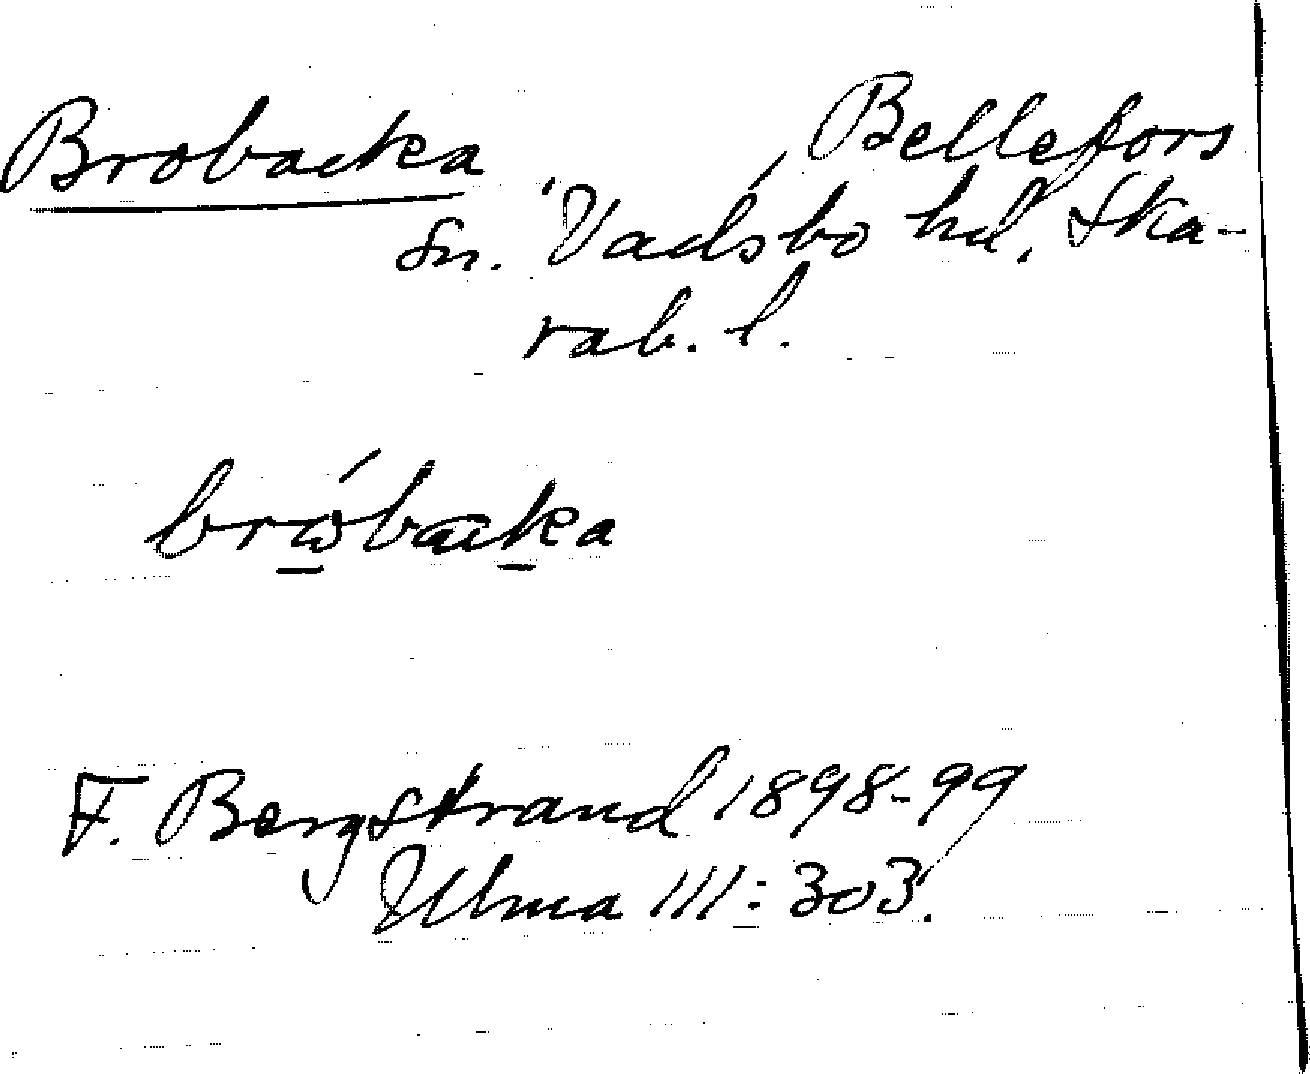 Brobacka Bellefors
sn. Vadsbo hd. Ska-
rab. l.
brώbacka
F. Bergstrand 1898-99
Ulma III: 303.